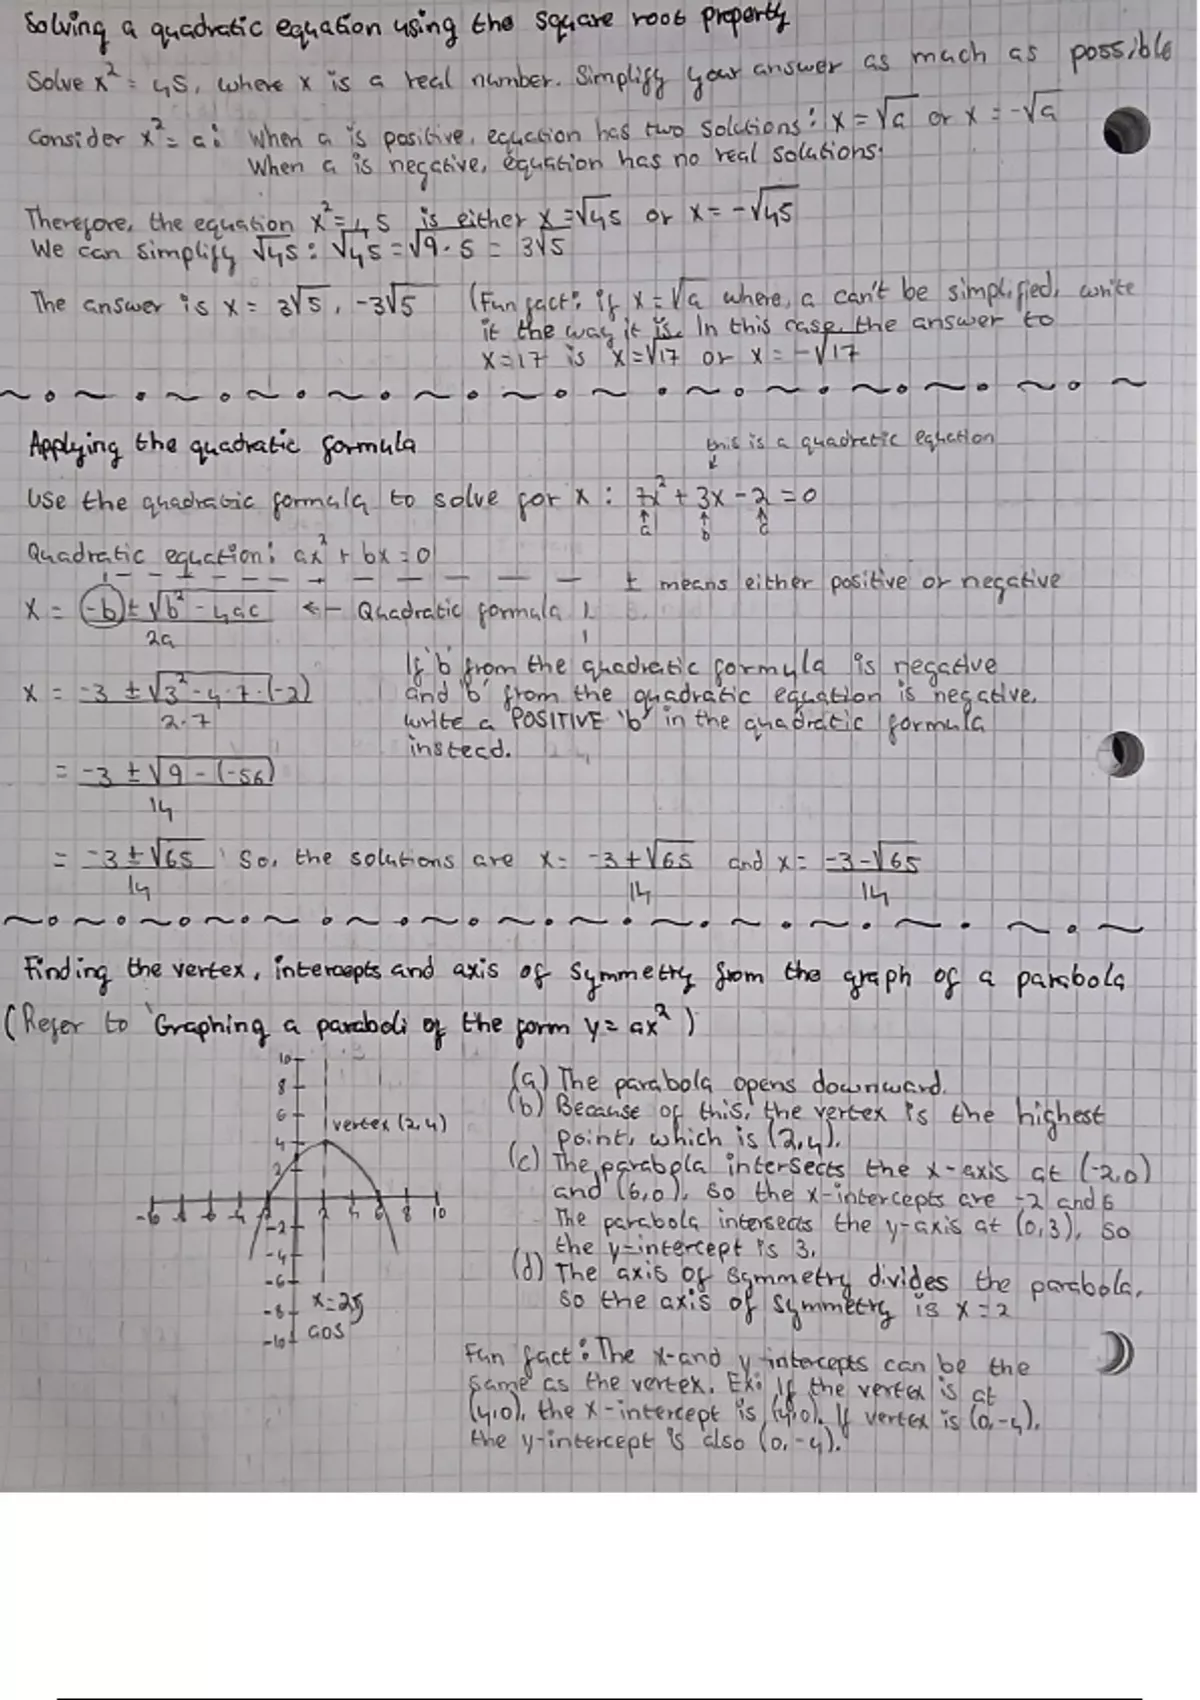 Solving a quadratic equation using the square root property
Solve x² = 45, where x is a real number. Simplify your answer as much as possible
Consider x² = a: When a is positive, equation has two solutions: x = √a or x = -√a
When a is negative, equation has no real solutions.
Therefore, the equation x² = 45 is either x = √45 or x = -√45
We can simplify √45: √45 = √9·5 = 3√5
The answer is x = 3√5, -3√5
(Fun fact: if x = √a where, a can't be simplified, write
it the way it is. In this case, the answer to
x=17 is x=√17 or x = -√17
Applying the quadratic formula
this is a quadratic equation
Use the quadratic formula to solve for x: 7x² + 3x - 2 = 0
a b c
Quadratic equation: ax² + bx = 0
± means either positive or negative
x = -b ± √b² - 4ac ← Quadratic formula
2a
If 'b' from the quadratic formula is negative
x = -3 ± √3² - 4·7·(-2) and 'b' from the quadratic equation is negative,
2·7 write a POSITIVE 'b' in the quadratic formula
instead.
= -3 ± √9 - (-56)
14
= -3 ± √65 So, the solutions are x = -3+√65 and x = -3-√65
14 14 14
Finding the vertex, intercepts and axis of symmetry from the graph of a parabola
(Refer to 'Graphing a paraboli of the form y = ax²)
10
8
6
vertex (2,4)
4
2
-6 -4 2 4 6 8 10
-2
-4
-6
-8 x=2
-10 aos
(a) The parabola opens downward.
(b) Because of this, the vertex is the highest
point, which is (2,4).
(c) The parabola intersects the x-axis at (-2,0)
and (6,0), so the x-intercepts are -2 and 6
The parabola intersects the y-axis at (0,3), so
the y-intercept is 3.
(d) The axis of symmetry divides the parabola,
so the axis of symmetry is x = 2
Fun fact: The x-and y-intercepts can be the
same as the vertex. Ex: If the vertex is at
(4,0), the x-intercept is (4,0). If vertex is (0,-4),
the y-intercept is also (0,-4).